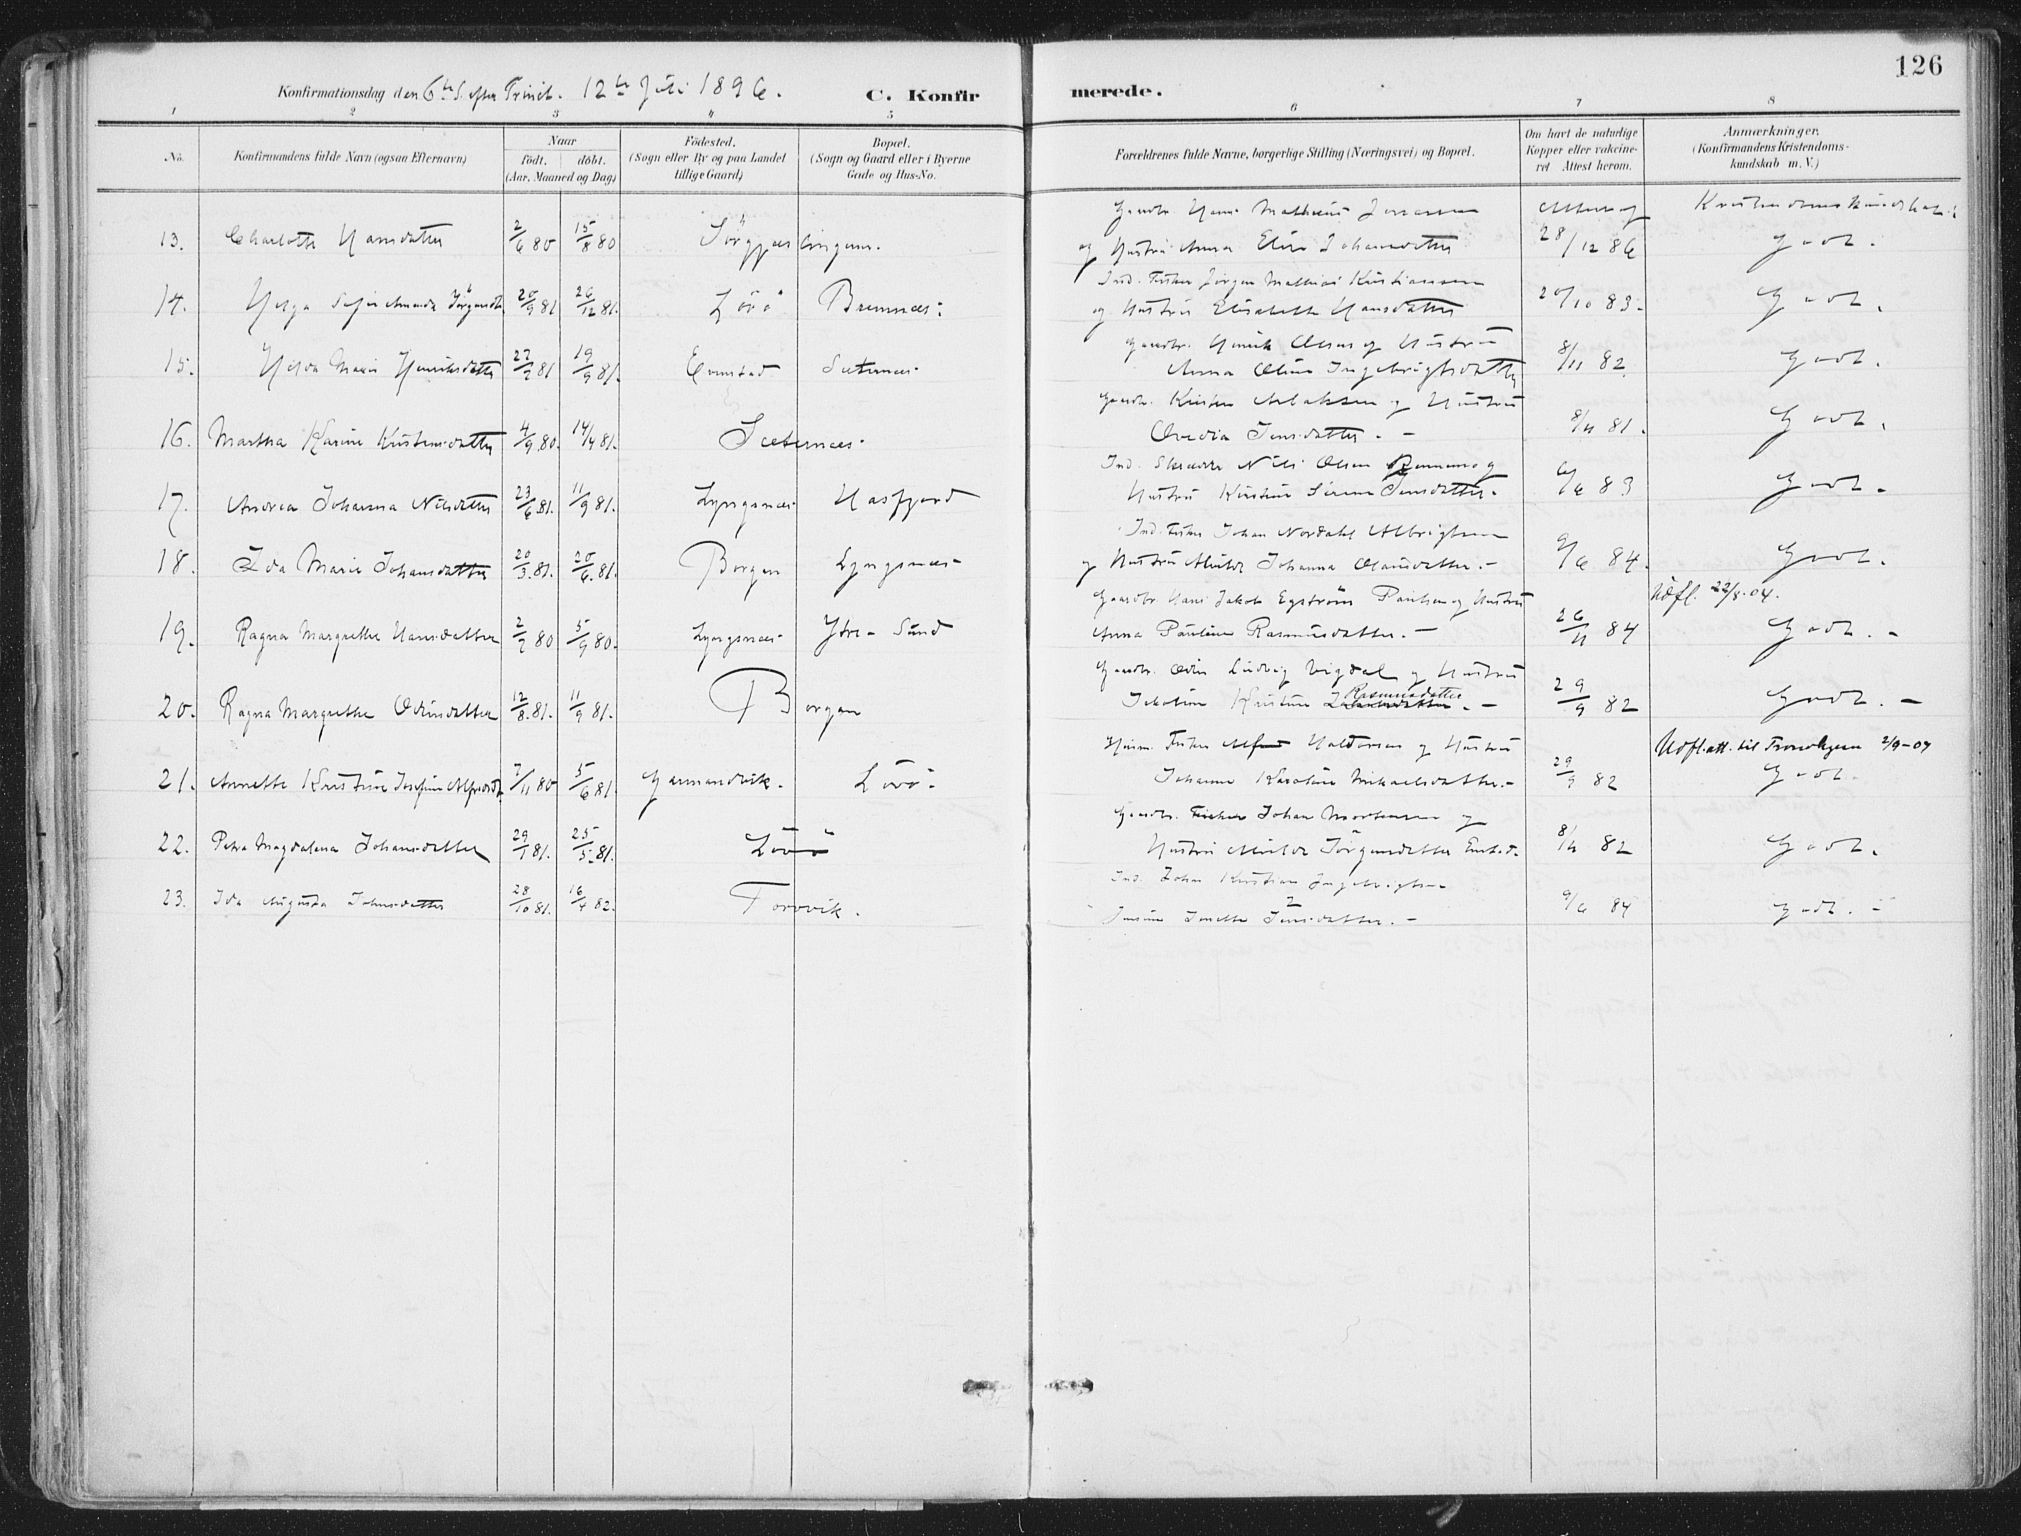 126
Konfirmationsdag den 6te S. efter Trinit. 12te Juli 1896. C. Konfirmerede.
1 2 3 4 5 6 7 8
No. Konfirmandens fulde Navn (ogsaa Efternavn) Naar födt. döbt. (Aar, Maaned og Dag) Födested. (Sogn eller By og paa Landet tillige Gaard) Bopæl. (Sogn og Gaard eller i Byerne Gade og Hus-No. Forældrenes fulde Navne, borgerlige Stilling (Næringsvei) og Bopæl. Om havt de naturlige Kopper eller vakcineret Attest herom. Anmærkninger. (Konfirmandens Kristendomskundskab m. V.)
Gaardbr. Hans Mathias Kristendomskundskab:
13. Charlotte Hansdatter 2/6 80 15/8 80 og Hustru Anna Johansdatter 28/12 86 Godt.
Ind. Fisker Jörgen Mathias Kristiansen
14. Helga Sofie Amanda Jörgensdt. 20/9 81 26/12 81. Lövö Bremnæs: og Hustru Elisabeth Hansdatter 20/10 83. Godt.
Gaardbr. Henrik Olsen og Hustru
15. Helda Marie Henriksdatter 27/7 81 19/9 81. Evenstad Sæternes. Anna Oline Ingebrigtsdatter 8/11 82. Godt.
Gaardbr. Kristen Aslaksen og Hustru
16. Martha Karine Kristensdatter 4/9 80. 14/4 81. Sæternæs. Ovedia Jensdatter. - 8/11 81. Godt.
Ind. Skrædder Nils Olsen og
17. Andrea Johanna Nilsdatter 23/6 81. 11/9 81. Lyngsnæs. Hasfjord Hustru Kirstine Jensdatter. 6/6 83 Godt.
Ind. Fisker Johan Nordahl Albrigtsen
18. Ida Marie Johansdatter 20/3 81. 20/6 81. Borgen Lyngsnæs og Hustru Alvilde Johanna Olausdatter. - 9/6 84. Godt.
Gaardbr. Hans Jakob Egström Paulsen og Hustru Udfl. 22/8-04.
19. Ragna Margrethe Hansdatter 2/7 80 5/9 80. Lyngsnæs. Ytre-Sund Anna Pauline Rasmusdatter. - 26/11 84 Godt. -
Gaardbr. Odin Ludvig Vigdal og Hustru
20. Ragna Margrethe Odinsdatter 12/8 81. 11/9 81. Borgan Jakobine Kristine Rasmusdatter. - 29/9 82 Godt. -
Fisker Alfred Haldorsen og Hustru Udfl.att. til Tromöyen 2/9-07
21. Annette Kristine Josefine Alfredsdt. 7/11 80 5/6 81. Garmandvik. Lövö. Johanne Karoline Mikaelsdatter. - 29/9 82 Godt.
Gaardbr. Fisker Johan Mortensen og
22. Petra Magdalena Johansdatter 29/1 81. 25/5 81. Lövö Hustru Alvilde Jörgensdatter 8/11 82 Godt.
Ind. Johan Kristian Ingebrigtsen
23. Ida Augusta Johnsdatter 28/10 81. 16/4 82. Torovik. Josine Jonetta Jensdatter. - 9/6 84 Godt. -